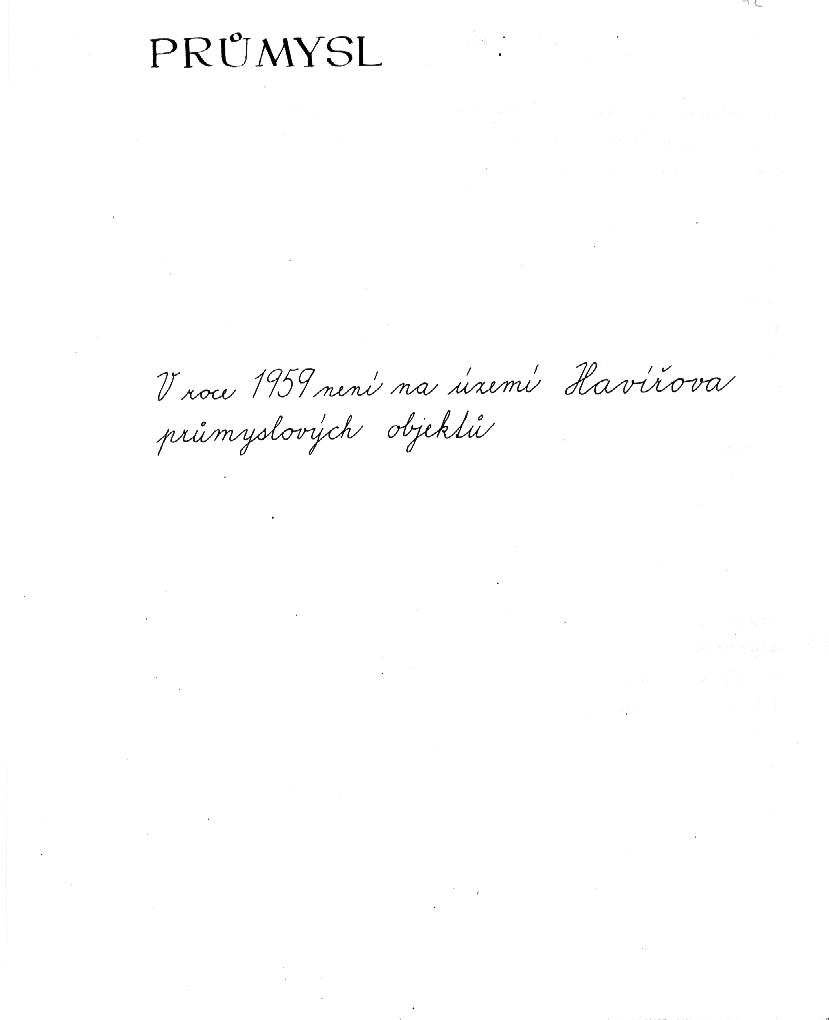 PRŮMYSL
V roce 1959 není na území Havířova
průmyslových objektů